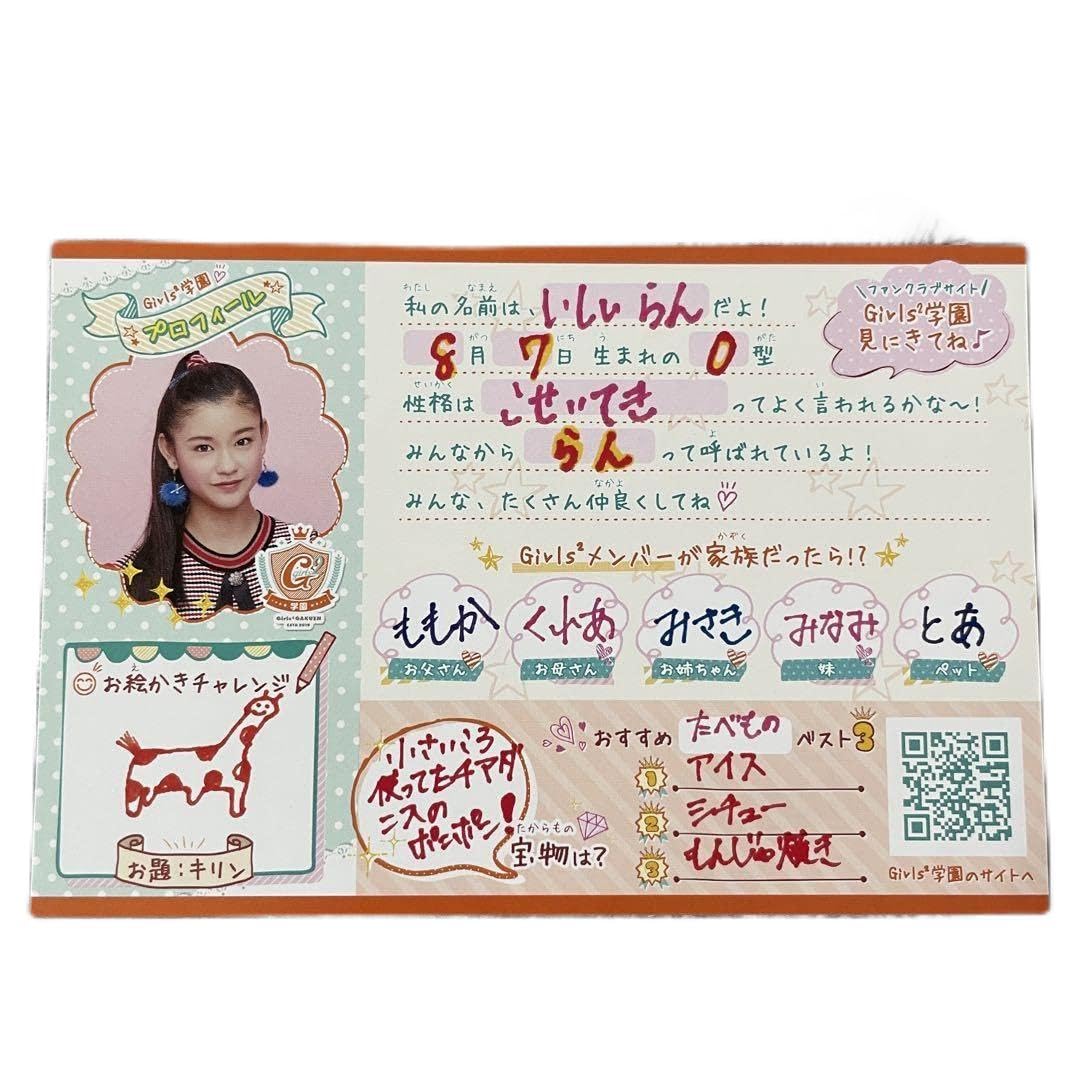 Girls²学園
プロフィール
私の名前は、いしい らんだよ！
わたし なまえ
8月7日 生まれの O型
がつ にち う がた
性格は こせいてき ってよく言われるかな〜！
せいかく い
みんなから らん って呼ばれているよ！
よ
みんな、たくさん仲良くしてね♡
なかよ
\ファンクラブサイト/
Girls²学園
見にきてね♪
Girls²メンバーが家族だったら!?
かぞく
ももか くれあ みさき みなみ とあ
お父さん お母さん お姉ちゃん 妹 ペット
girls²
学園
Girls²GAKUEN
お絵かきチャレンジ
え
お題：キリン
小さいころ
使ってたチアダ
ンスの
ポンポン！
宝物は？
たからもの
おすすめ たべもの ベスト3
1 アイス
2 シチュー
3 もんじゃ焼き
Girls²学園のサイトへ